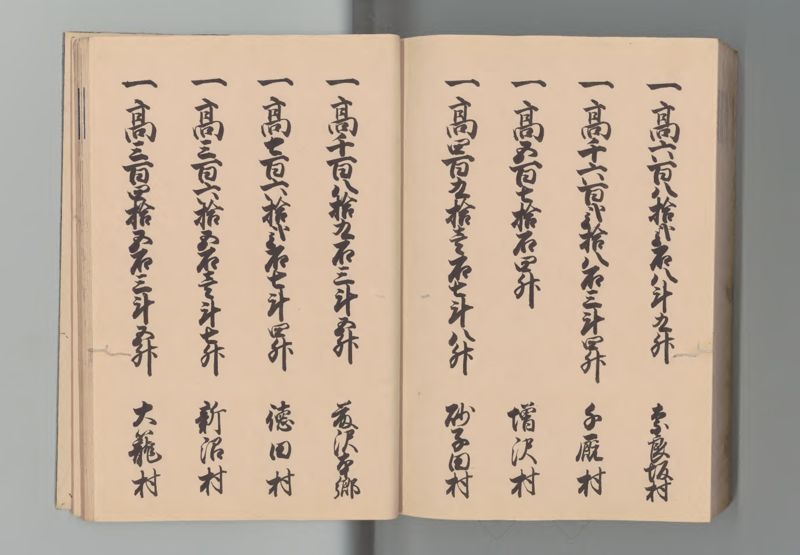 一高六百八拾弐石八斗九升 奈良坂村
一高千六百弐拾八石三斗四升 千厩村
一高五百七拾石四升 増沢村
一高四百九拾壱石七斗八升 砂子田村
一高千百八拾九石三斗五升 藤沢本郷
一高七百六拾弐石七斗四升 徳田村
一高三百六拾五石壱斗七升 新沼村
一高三百四拾五石三斗五升 大籠村